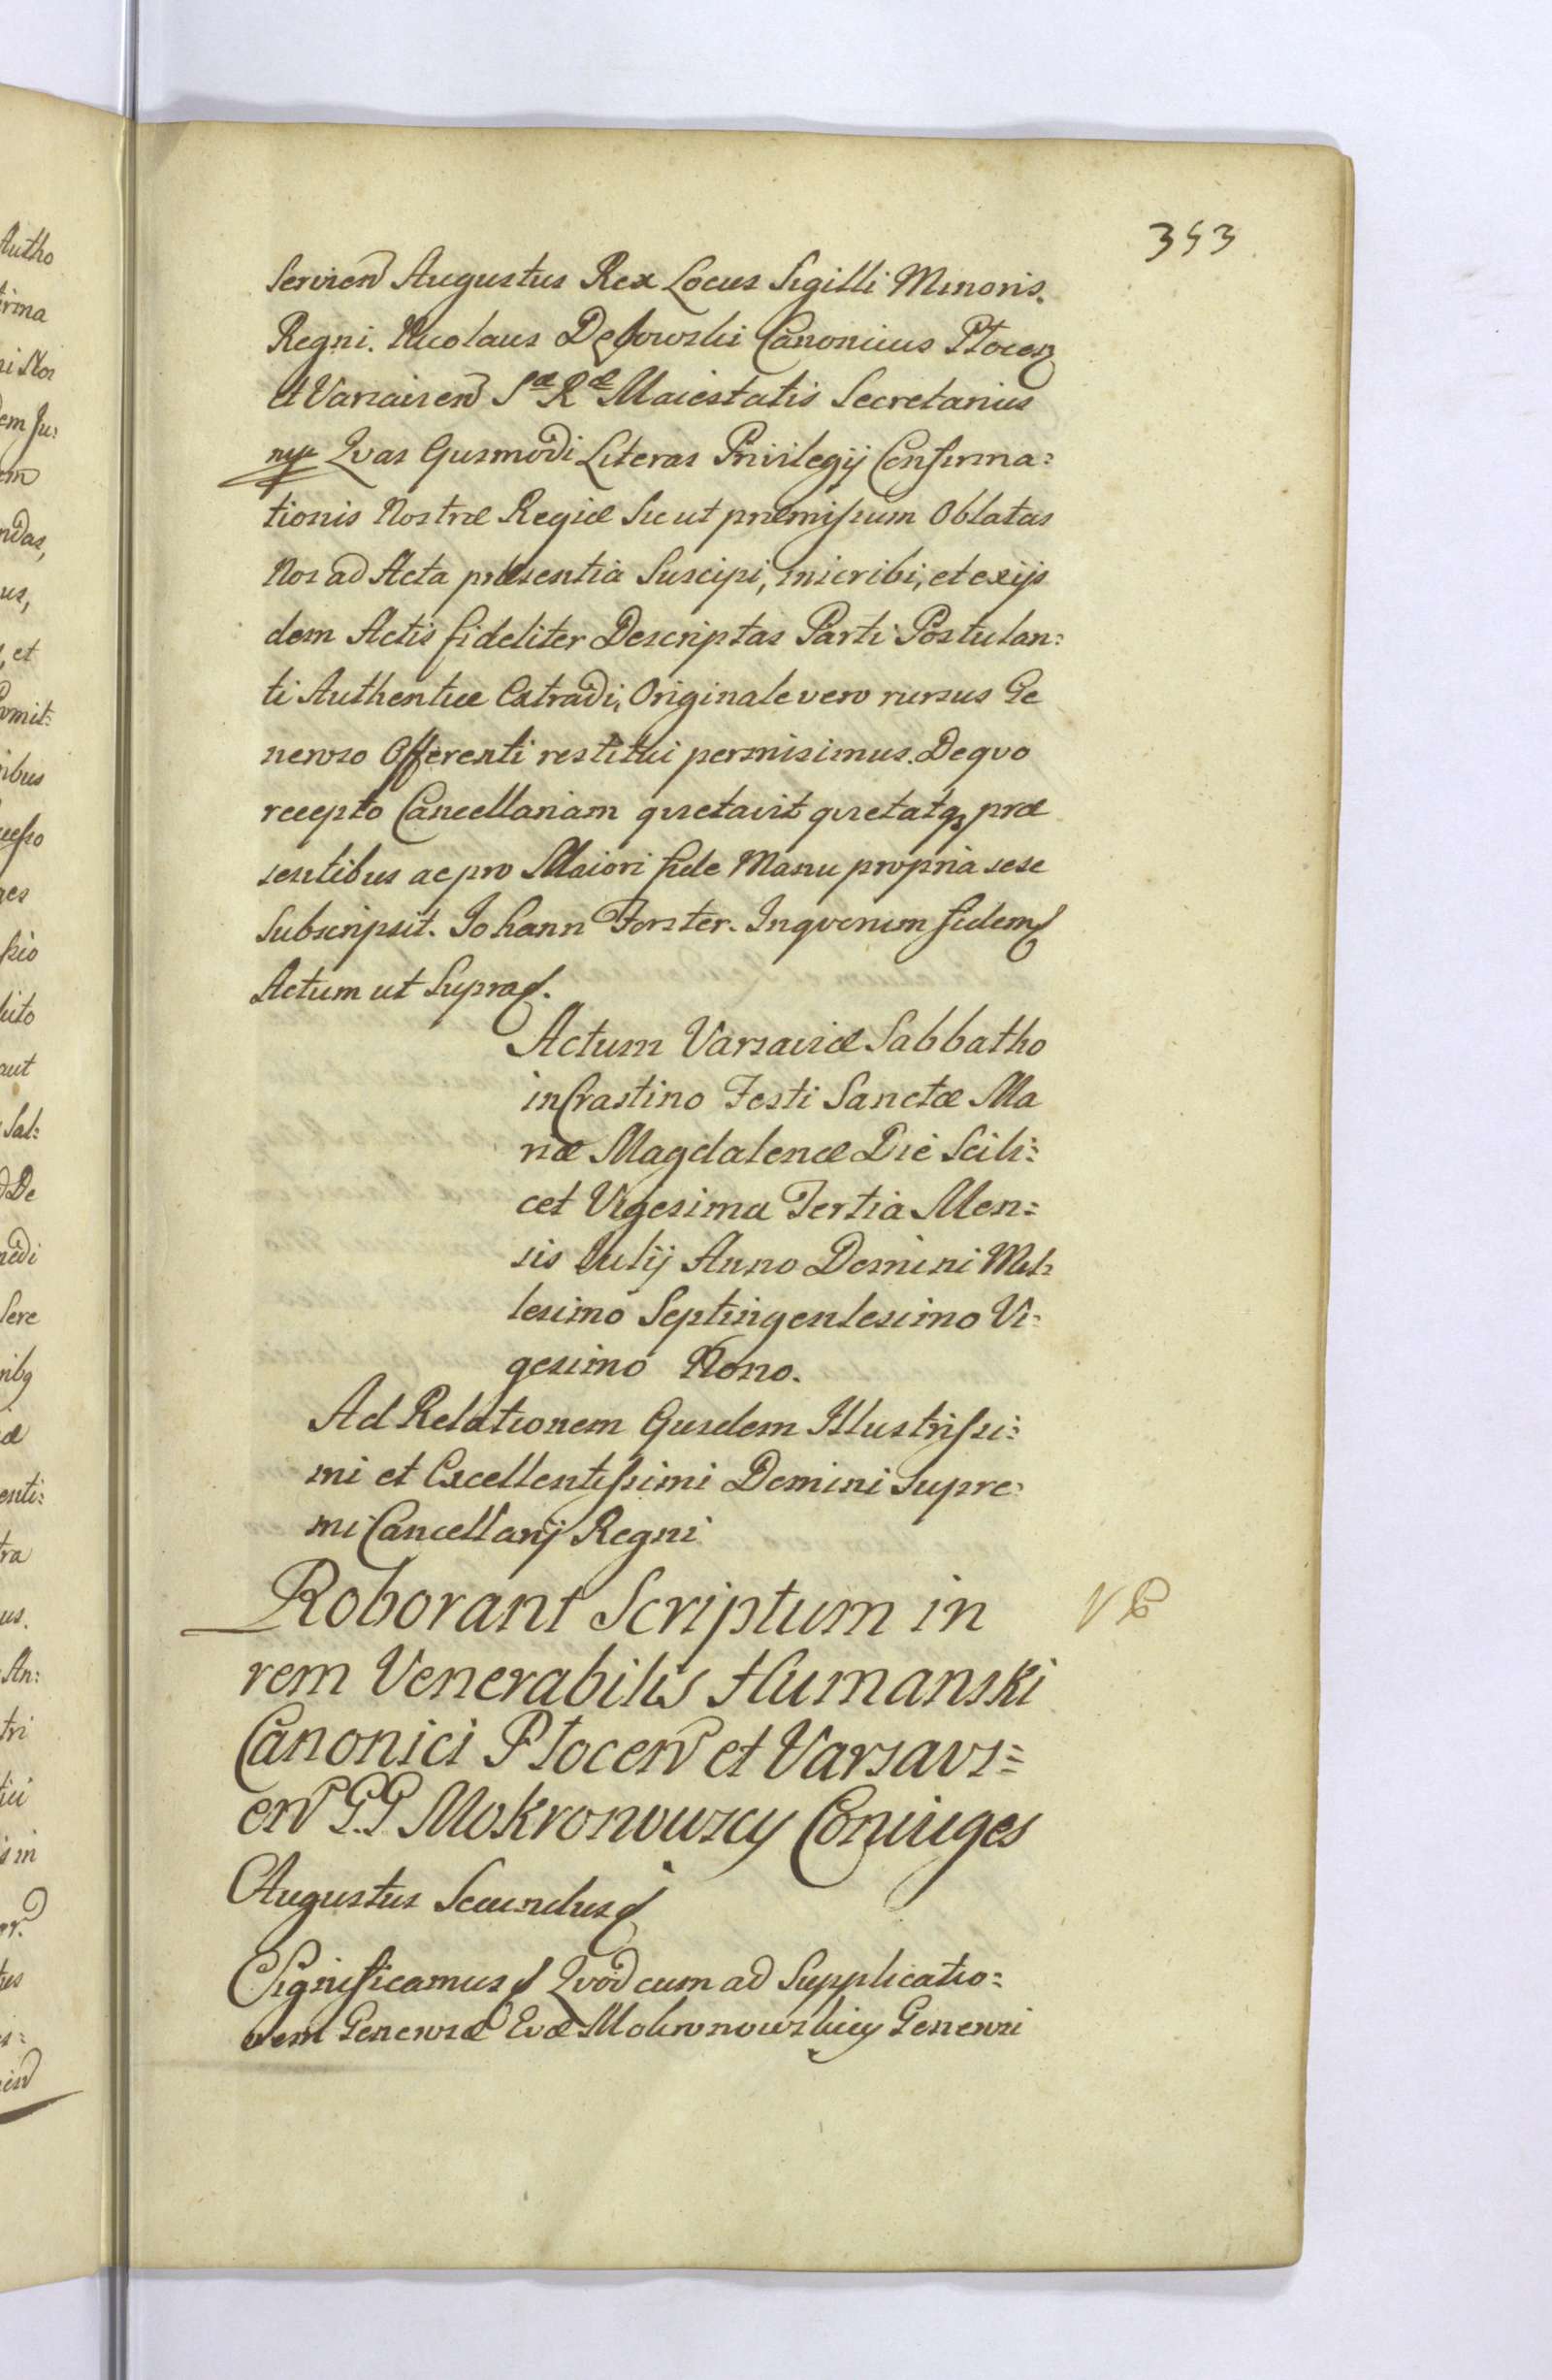 353
Servien Augustus Rex Locus Sigilli Minoris.
Regni. Nicolaus Dębowski Canonicus Płocen
et Varsavien Sæ Ræ Maiestatis Secretarius
mp Qvas Ejusmodi Literas Privilegij Confirma=
tionis Nostræ Regiæ Sicut præmissum Oblatas
Nos ad Acta præsentia Suscipi, inscribi, et exijs
dem Actis fideliter Descriptas Parti Postulan=
ti Authentice Extradi, Originale vero rursus Ge
neroso Offerenti restitui permisimus. De qvo
recepto Cancellariam qvietavit qvietatq præ
sentibus ac pro Maiori fide Manu propria sese
Subscripsit. Johann Forster. In qvorum fidem
Actum ut Supra.
Actum Varsaviæ Sabbatho
in Crastino Festi Sanctæ Ma
riæ Magdalenæ Die Scili=
cet Vigesima Tertia Men=
sis Julij Anno Domini Mil=
lesimo Septingentesimo Vi=
gesimo Nono.
Ad Relationem Ejusdem Illustrissi=
mi et Excellentissimi Domini Supre=
mi Cancellarij Regni
Roborant Scriptum in
rem Venerabilis Humanski
Canonici Płocen et Varsavi=
en G.G Mokronowscy Coniuges
Augustus Secundus
Significamus Qvod cum ad Supplicatio=
nem Generosæ Evæ Mokronowskiey Generosi